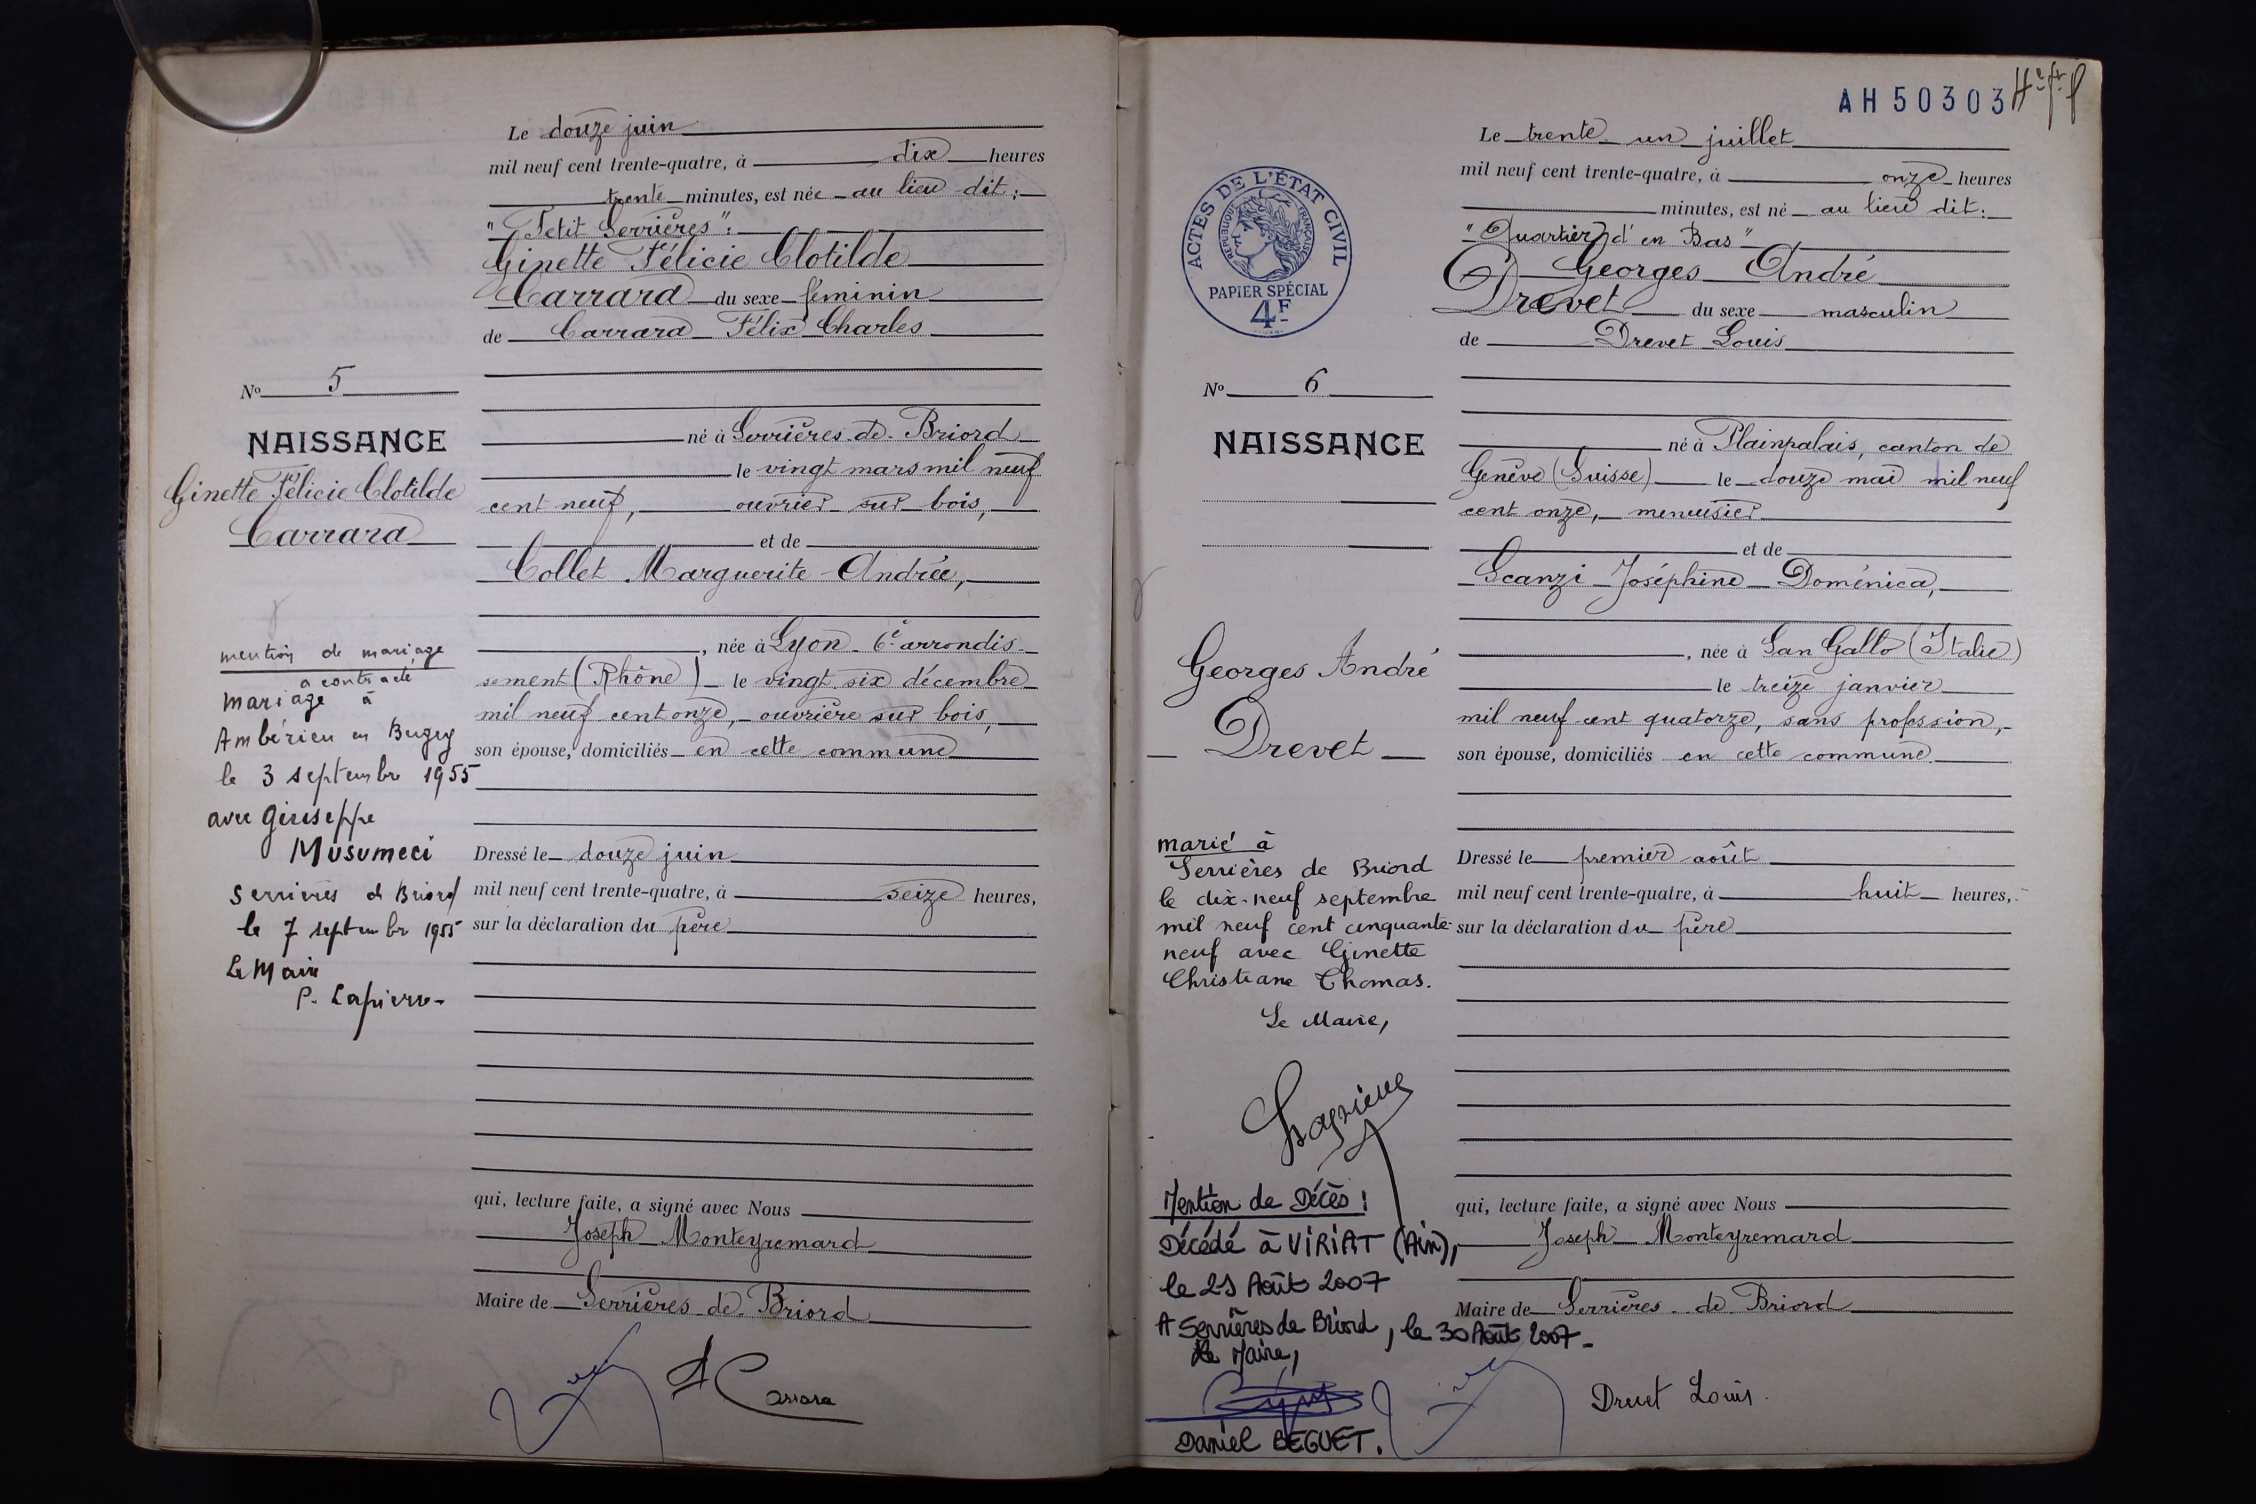 Le douze juin
mil neuf cent trente-quatre, à dix heures
trente minutes, est née au lieu dit :
"Petit Serrières" :
Ginette Félicie Clotilde
Carrara du sexe féminin
de Carrara Félix Charles
né à Serrières-de-Briord
le vingt mars mil neuf
cent neuf, ouvrier sur bois,
et de
Collet Marguerite Andrée,
, née à Lyon 6e arrondis-
sement (Rhône) le vingt six décembre
mil neuf cent onze, ouvrière sur bois,
son épouse, domiciliés en cette commune
Dressé le douze juin
mil neuf cent trente-quatre, à seize heures,
sur la déclaration du père
qui, lecture faite, a signé avec Nous
Joseph Monteyremard
Maire de Serrières-de-Briord
Carrara
No 5
NAISSANCE
Ginette Félicie Clotilde
Carrara
mention de mariage
a contracté
mariage à
Ambérieu en Bugey
le 3 septembre 1955
avec Giuseppe
Musumeci
Serrières de Briord
le 7 septembre 1955
Le Maire
P. Lapierre
AH 50303
Le trente un juillet
mil neuf cent trente-quatre, à onze heures
minutes, est né au lieu dit :
"Quartier d'en Bas"
Georges André
Drevet du sexe masculin
de Drevet Louis
né à Plainpalais, canton de
Genève (Suisse) le douze mai mil neuf
cent onze, menuisier
et de
Scanzi Joséphine Doménica,
, née à San Gallo (Italie)
le treize janvier
mil neuf cent quatorze, sans profession,
son épouse, domiciliés en cette commune.
Dressé le premier août
mil neuf cent trente-quatre, à huit heures,
sur la déclaration du père
qui, lecture faite, a signé avec Nous
Joseph Monteyremard
Maire de Serrières-de Briord
Drevet Louis.
ACTES DE L'ÉTAT CIVIL
RÉPUBLIQUE FRANÇAISE
PAPIER SPÉCIAL
4F
No 6
NAISSANCE
Georges André
Drevet
marié à
Serrières de Briord
le dix-neuf septembre
mil neuf cent cinquante-
neuf avec Ginette
Christiane Thomas.
Le Maire,
Lapierre
Mention de Décès :
Décédé à VIRIAT (Ain),
le 21 Août 2007
A Serrières de Briord, le 30 Août 2007-
Le Maire,
Daniel BEGUET.